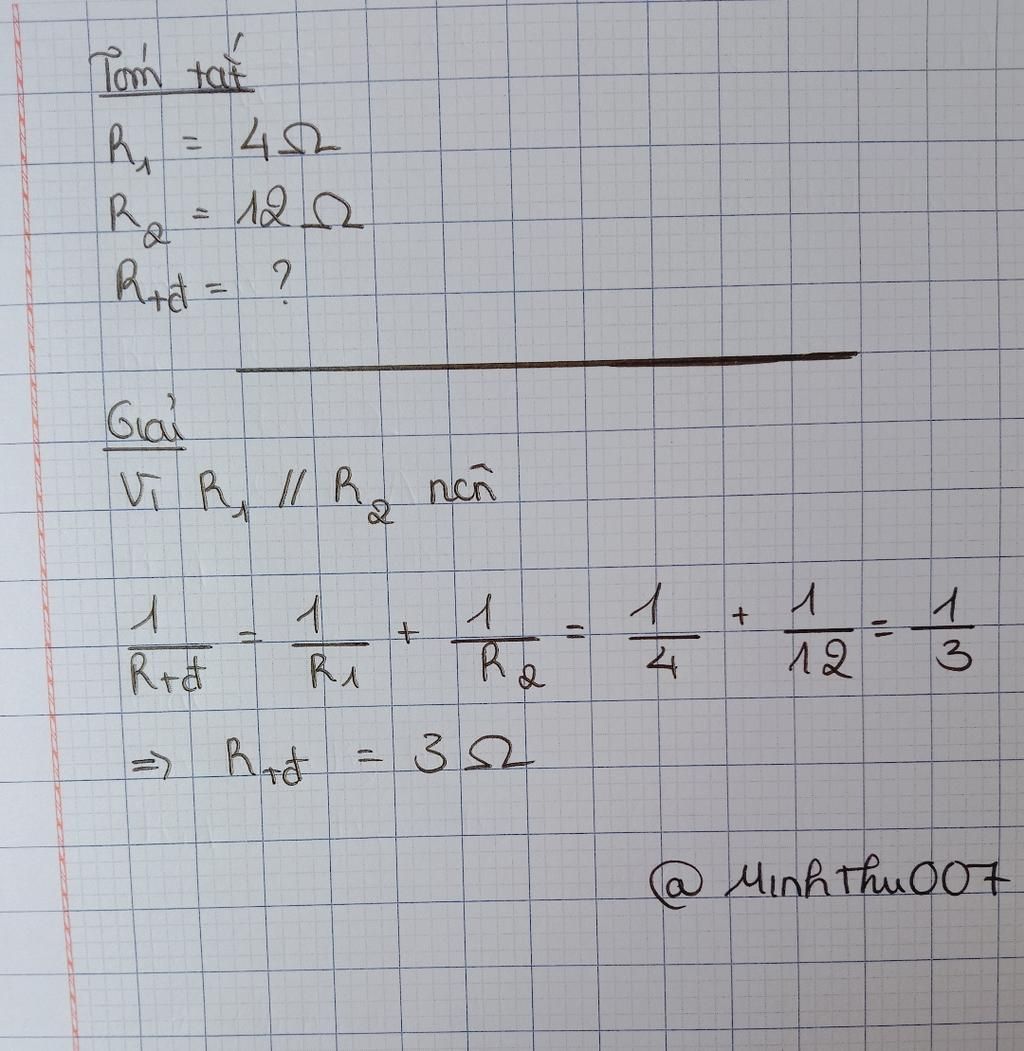 Tóm tắt
R₁ = 4Ω
R₂ = 12Ω
Rtđ = ?
Giải
Vì R₁ // R₂ nên
1/Rtđ = 1/R₁ + 1/R₂ = 1/4 + 1/12 = 1/3
=> Rtđ = 3Ω
@MinhThu007